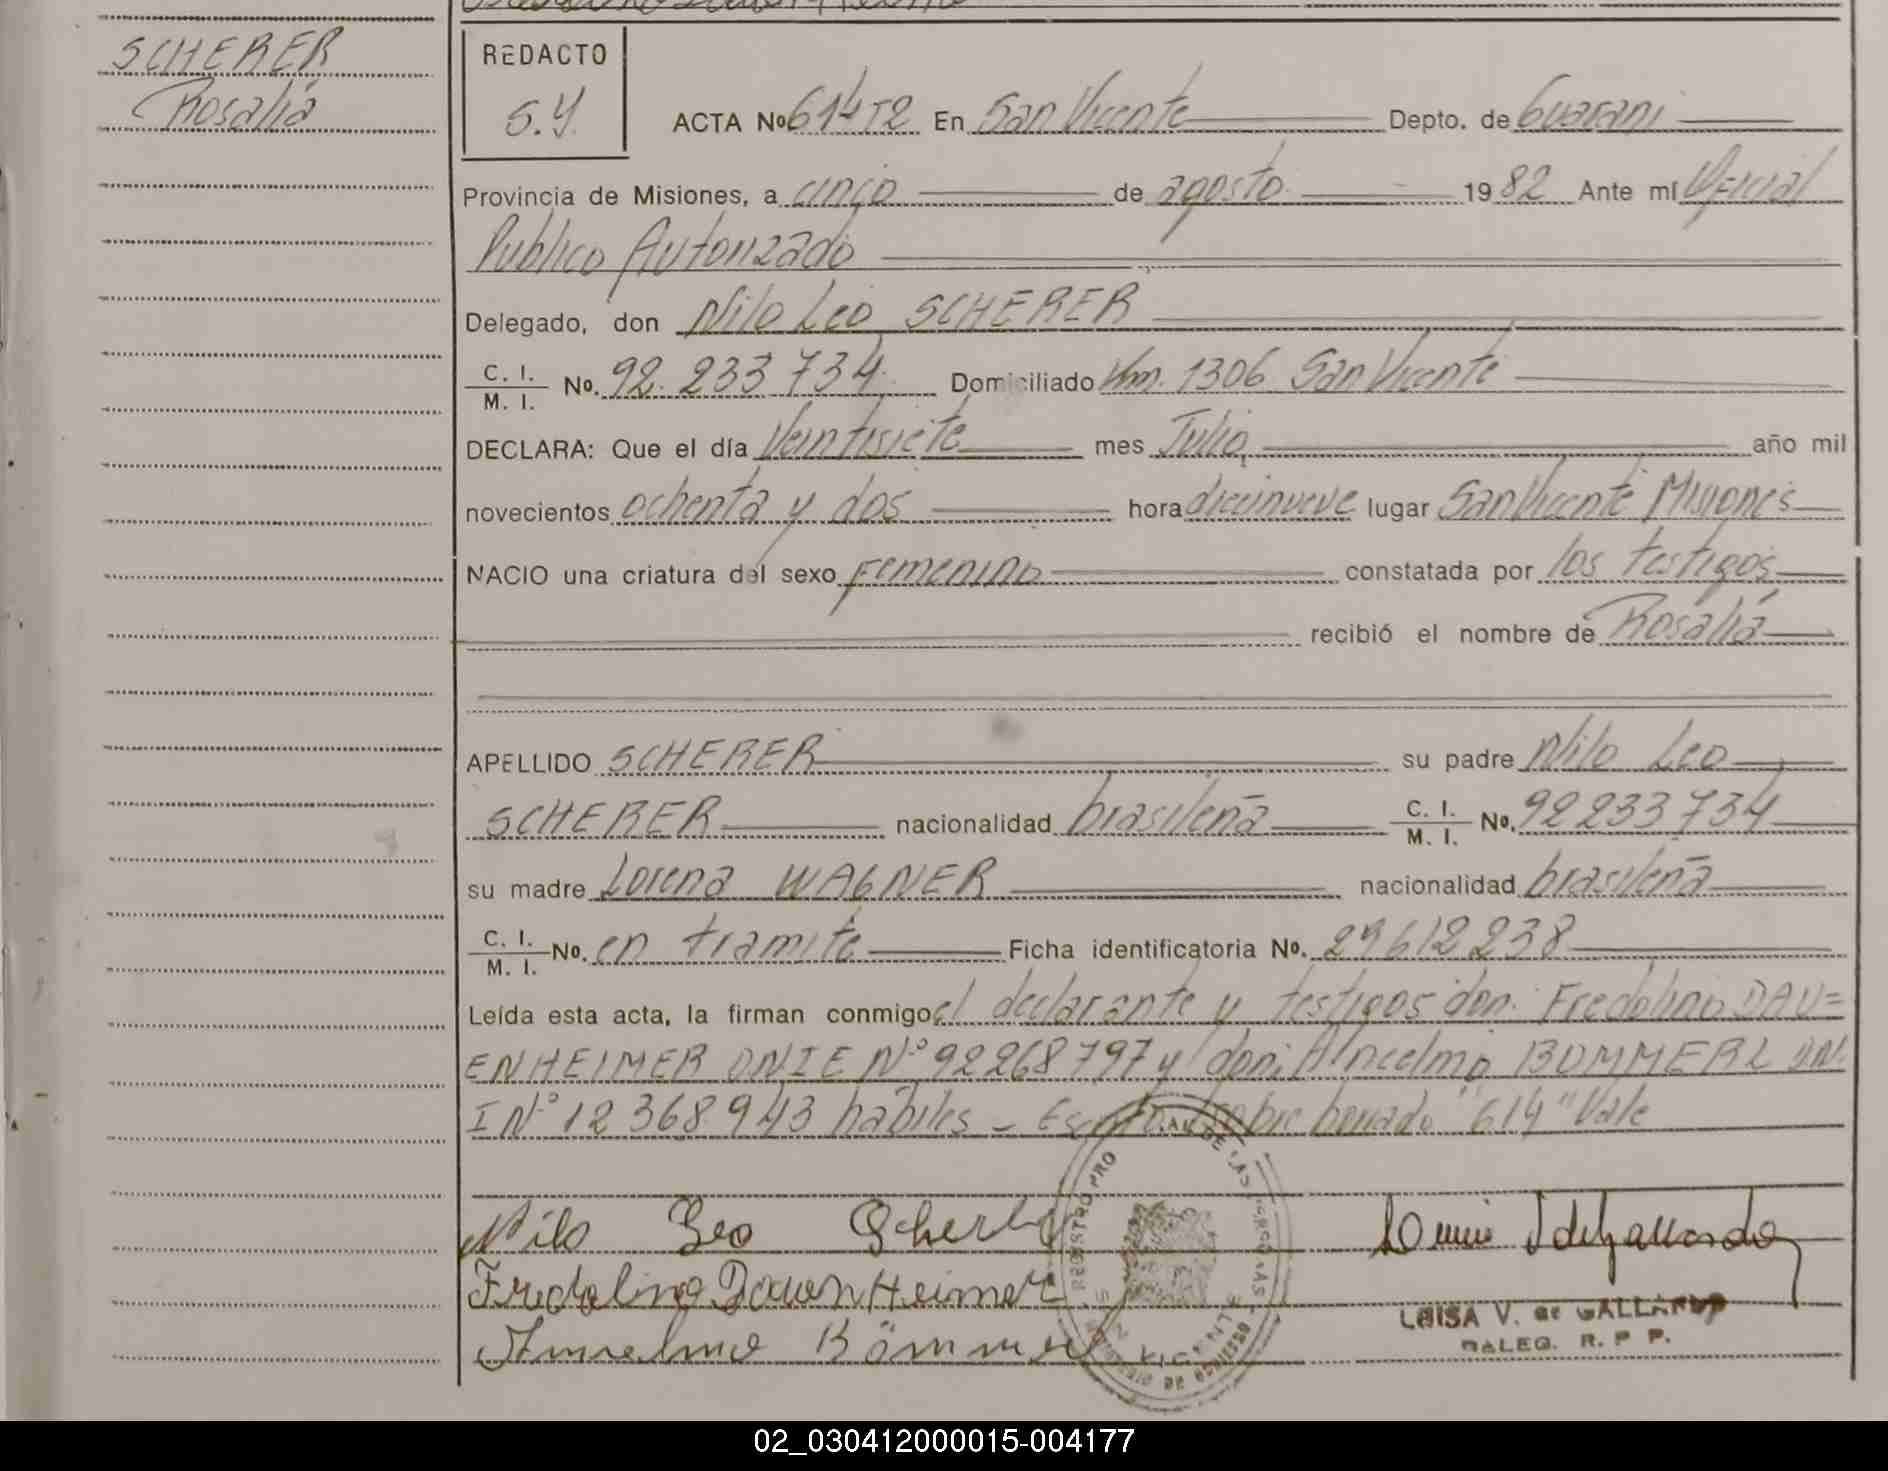 SCHERER
Rosalia
REDACTO
S.Y.
ACTA Nº 614T2 En San Vicente Depto. de Guarani
Provincia de Misiones, a cinco de agosto 1982 Ante mí Oficial
Publico Autorizado
Delegado, don Nilo Leo SCHERER
C. I. / M. I. No. 92.233734 Domiciliado Km. 1306 San Vicente
DECLARA: Que el día Veintisiete mes Julio año mil
novecientos ochenta y dos hora diecinueve lugar San Vicente Misiones
NACIO una criatura del sexo Femenino constatada por los testigos
recibió el nombre de Rosalia
APELLIDO SCHERER su padre Nilo Leo
SCHERER nacionalidad brasileña C. I. / M. I. No. 92233734
su madre Lorena WAGNER nacionalidad brasileña
C. I. / M. I. No. en tramite Ficha identificatoria No. 29612238
Leída esta acta, la firman conmigo el declarante y testigos don: Fredolino DAU=
ENHEIMER DNIE Nº 92268797 y don: Alncelmo BOMMERL DN.
I Nº 12368943 habiles - Escrito sobre borrado "614" Vale
Nilo Leo Scherer
Fredolino DauenHeimer
Anselmo Bömmerl
REGISTRO PRO DE LAS PERSONAS
LUISA V. de GALLARDO
DALEG. R. P P.
02_030412000015-004177